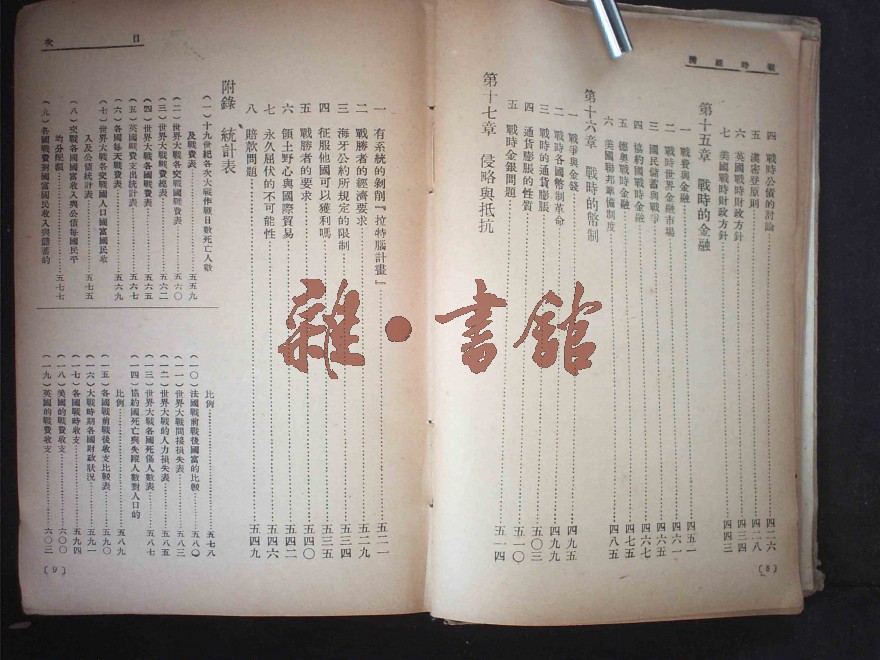 戰時經濟
四 戰時公債的討論……四二六
五 漢密登原則……四二八
六 英國戰時財政方針……四三四
七 美國戰時財政方針……四四三
第十五章 戰時的金融
一 戰費與金融……四五一
二 戰時世界金融市場……四六一
三 國民儲蓄與戰爭……四六五
四 協約國戰時金融……四六七
五 德奧戰時金融……四七五
六 美國聯邦準備制度……四八五
第十六章 戰時的幣制
一 戰爭與金錢……四九五
二 戰時各國幣制革命……四九九
三 戰時的通貨膨脹……五〇三
四 通貨膨脹的性質……五一〇
五 戰時金銀問題……五一四
第十七章 侵略與抵抗
(8)
目次
一 有系統的剝削『拉特腦計畫』……五二一
二 戰勝者的經濟要求……五二九
三 海牙公約所規定的限制……五三四
四 征服他國可以獲利嗎……五三五
五 戰勝者的要求……五四〇
六 領土野心與國際貿易……五四二
七 永久屈伏的不可能性……五四六
八 賠款問題……五四九
附錄 統計表
(一)十九世紀各次大戰作戰日數死亡人數
及戰費表……五五九
(二)世界大戰各交戰國戰費表……五六〇
(三)世界大戰戰費總表……五六二
(四)世界大戰各國戰費表……五六五
(五)英國戰費支出統計表……五六七
(六)各國每天戰費表……五六九
(七)世界大戰各交戰國人口國富國民收
入及公債統計表……五七五
(八)交戰各國國富收入與公債每國民平
均分配額……五七七
(九)各國戰費對國富國民收入與儲蓄的
比例……五七八
(一〇)法國戰前戰後國富的比較……五八〇
(一一)世界大戰間接損失表……五八三
(一二)世界大戰的人力損失表……五八五
(一三)世界大戰各國死傷人數表……五八七
(一四)協約國死亡與失蹤人數對人口的
比例……五八九
(一五)各國戰前戰後收支比較表……五九〇
(一六)大戰時期各國財政狀況……五九一
(一七)各國戰時收支……五九四
(一八)美國的戰費收支……六〇〇
(一九)英國的戰費收支……六〇三
(9)
雜·書館